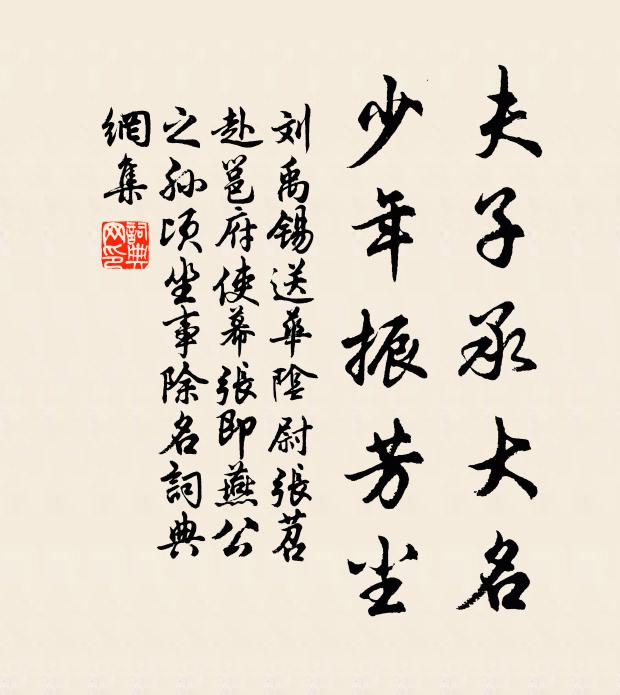 夫子承大名
少年振芳尘
刘禹锡送華陰尉張苕
赴邕府使幕張即燕公
之孙顷坐事除名詞典
網集
詞典
网印